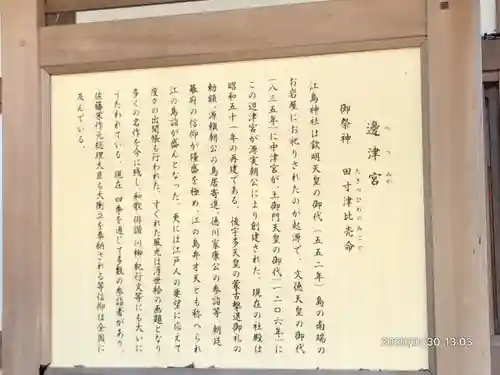 邊津宮
へつみや
御祭神　田寸津比売命
たぎつひめのみこと
江島神社は欽明天皇の御代（五五二年）島の南端の
お岩屋にお祀りされたのが起源で、文徳天皇の御代
（八三五年）に中津宮が、土御門天皇の御代（一二〇六年）に
この辺津宮が源実朝公により創建された。現在の社殿は
昭和五十一年の再建である。後宇多天皇の蒙古撃退御礼の
勅額、源頼朝公の鳥居寄進、徳川家康公の参詣等 朝廷
幕府の信仰が隆盛を極め、江の島弁才天とも称へられ
江の島詣が盛んとなった。更には江戸人の要望に応えて
度々の出開帳も行われた。すぐれた風光は浮世絵の画題となり
多くの名作を今に残し、和歌 俳諧 川柳 紀行文等にも大いに
うたわれている。現在 四季を通じて多数の参詣者があり、
佐藤栄作元総理大臣も大衡立を奉納される等信仰は全国に
及んでいる。
30 13:03